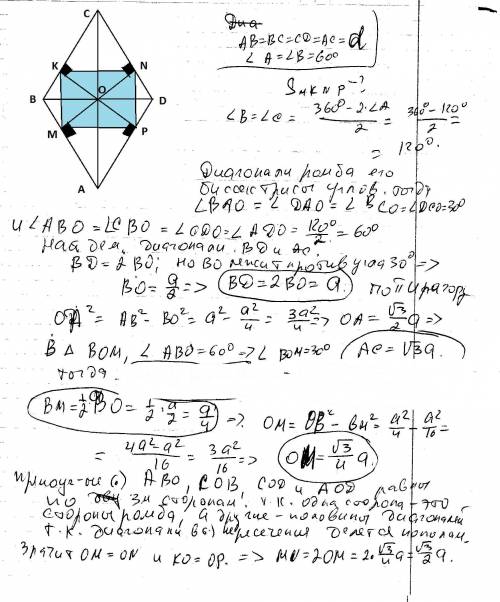 C
AB=BC=CD=AC=d
∠A=∠B=60°
K
N
S MKNP-?
B
O
D
∠B=∠C= (360°-2·∠A)/2 = (360°-120°)/2 =
M
P
=120°.
A
Диагонали ромба его
биссектрисы углов. тогда
∠BAO=∠DAO=∠BCO=∠DCO=30°
и ∠ABO=∠CBO=∠CDO=∠ADO=120°/2=60°
Найдем диагонали BD и AC.
BD=2BO; но BO лежит против угла 30° =>
BO=a/2 => BD=2BO=a. по Пифагору
OA²=AB²-BO²=a²-a²/4=3a²/4 => OA=√3/2 a =>
В Δ BOM, ∠ABO=60° => ∠BOM=30° AC=√3a.
тогда
BM=½BO=½·a/2=a/4 => OM=OB²-BM²=a²/4-a²/16=
=4a²-a²/16=3a²/16 => OM=√3/4 a.
треуг-ки ABO, COB COD и AOD равны
по 3м сторонам. т.к. одна сторона - это
стороны ромба, а другие - половины диагоналей
т.к. диагонали в пересечения делятся пополам.
Значит OM=ON и KO=OP. => MN=2OM=2·√3/4 a=√3/2 a.